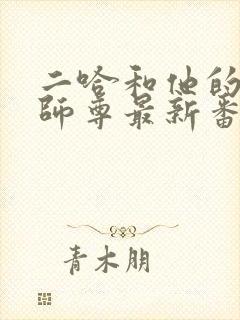 二哈和他的
師尊最新番
青木朋